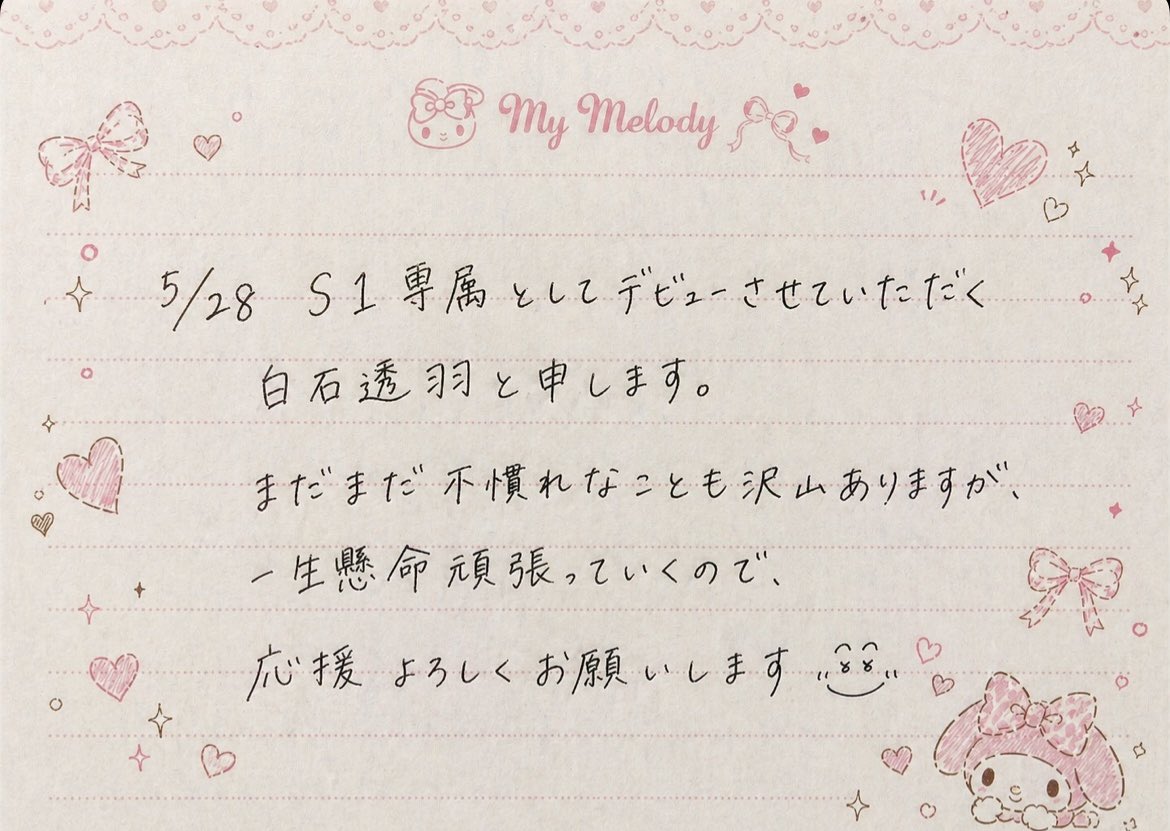 My Melody
5/28 S1専属としてデビューさせていただく
白石透羽と申します。
まだまだ不慣れなことも沢山ありますが、
一生懸命頑張っていくので、
応援よろしくお願いします